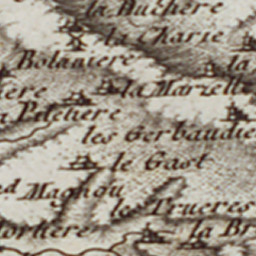 la Huchere
la Charie
Bolaniere
la
la Marielle
ere
Peletiere
les Gerbaudie
le Gast
d Magnou
les Trueres
la Br